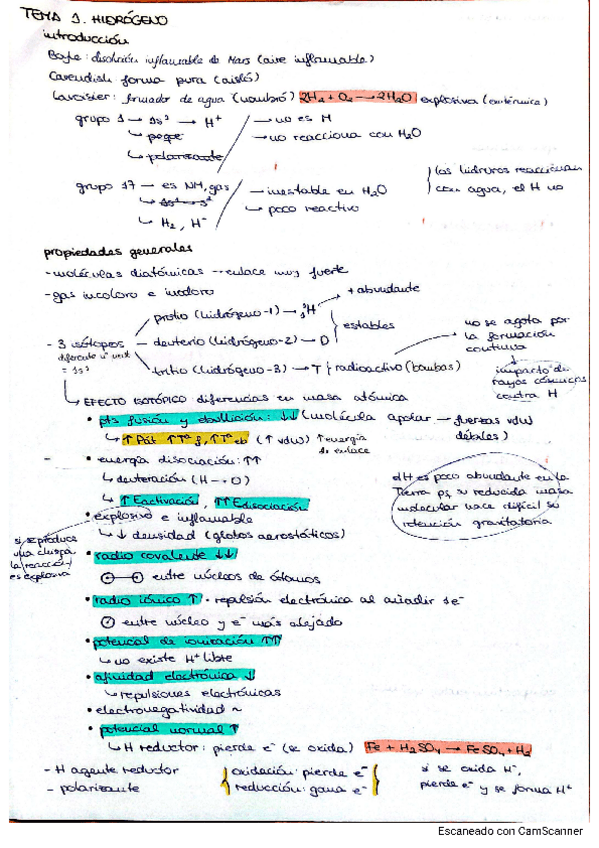 TEMA 1. HIDRÓGENO
introducción
Boyle: disolución inflamable de Mars (aire inflamable)
Cavendish: forma pura (aisló)
Lavoisier: formador de agua (nombró) 2H2 + O2 → 2H2O explosiva (exotérmica)
grupo 1 → 1s1 → H+
→ peque
→ polarizante
→ no es M
→ no reacciona con H2O
grupo 17 — es NM, gas
H2, H-
— inestable en H2O
→ poco reactivo
los hidruros reaccionan
con agua, el H no
propiedades generales
- moléculas diatómicas — enlace muy fuerte
- gas incoloro e inodoro
- 3 isótopos
diferente nº neut
= 1s1
protio (hidrógeno-1) → H
+ abundante
deuterio (hidrógeno-2) → D
estables
tritio (hidrógeno-3) → T } radioactivo (bombas)
no se agota por
la formación
continua
impacto de
rayos cósmicos
contra H
→ EFECTO ISOTÓPICO diferencias en masa atómica
• pts fusión y ebullición: ↓↓ (molécula apolar — fuerzas vdw
débiles)
→ ↑ Pat ↑Tª f, ↑Tª eb (↑ vdw) ↑ energía
de enlace
• energía disociación: ↑↑
→ deuteración (H → D)
→ ↑ Eactivación, ↑↑ Edisociación
el H es poco abundante en la
Tierra pq su reducida masa
molecular hace difícil su
retención gravitatoria
• explosivo e inflamable
→ ↓ densidad (globos aerostáticos)
si se produce
una chispa
la reacción
es explosiva
• radio covalente ↓↓
entre núcleos de átomos
• radio iónico ↑ • repulsión electrónica al añadir 1e-
entre núcleo y e- más alejado
• potencial de ionización ↑↑↑
→ no existe H+ libre
• afinidad electrónica ↓
→ repulsiones electrónicas
• electronegatividad ~
• potencial normal ↑
→ H reductor: pierde e- (se oxida) Fe + H2SO4 → FeSO4 + H2
- H agente reductor
- polarizante
oxidación: pierde e-
reducción: gana e-
si se oxida H-,
pierde e- y se forma H+
Escaneado con CamScanner